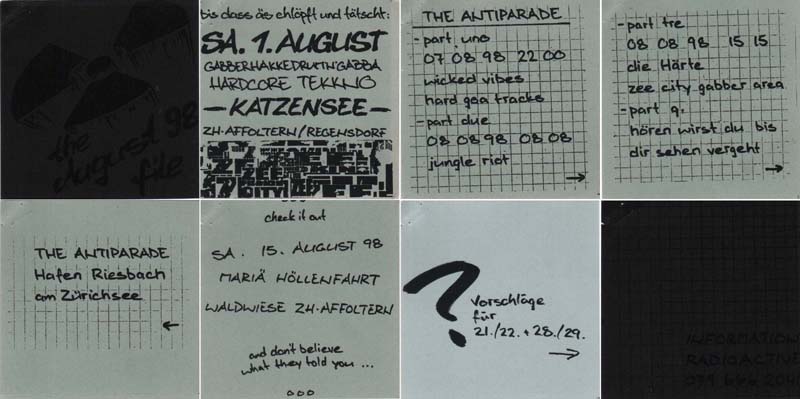 the
August 98
file
bis dass äs chlöpft und tätscht:
SA. 1. AUGUST
GABBERHAKKEDRUTNGABBA
HARDCORE TEKKNO
— KATZENSEE —
ZH-AFFOLTERN/REGENSDORF
THE ANTIPARADE
- part uno
07 08 98 22 00
wicked vibes
hard goa tracks
- part due
08 08 98 08 08
jungle riot
- part tre
08 08 98 15 15
die Härte
zee city gabber area
- part q.
hören wirst du bis
dir sehen vergeht
THE ANTIPARADE
Hafen Riesbach
am Zürichsee
check it out
SA. 15. AUGUST 98
MARIÄ HÖLLENFAHRT
WALDWIESE ZH-AFFOLTERN
and don't believe
what they told you ...
?
Vorschläge
für
21./22. + 28./29.
INFORMATION
RADIOACTIVE
079 646 2041